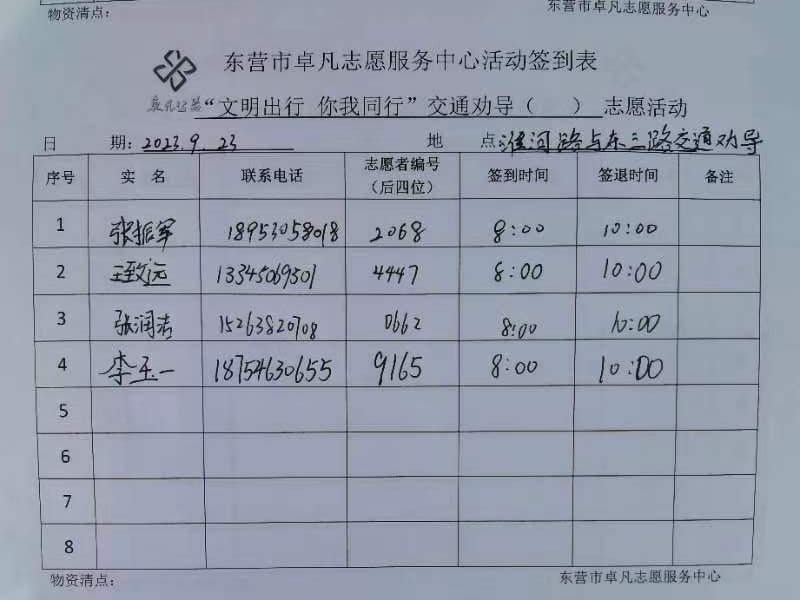 物资清点： 东营市卓凡志愿服务中心
东营市卓凡志愿服务中心活动签到表
卓凡公益 “文明出行 你我同行”交通劝导（ ）志愿活动
日 期：2023.9.23 地 点：淮河路与东三路交通劝导
序号 实 名 联系电话 志愿者编号（后四位） 签到时间 签退时间 备注
1 张振军 18953058018 2068 8:00 10:00
2 王致远 13345069501 4447 8:00 10:00
3 张润洁 15263820708 0662 8:00 10:00
4 李玉一 18754630655 9165 8:00 10:00
5
6
7
8
物资清点： 东营市卓凡志愿服务中心